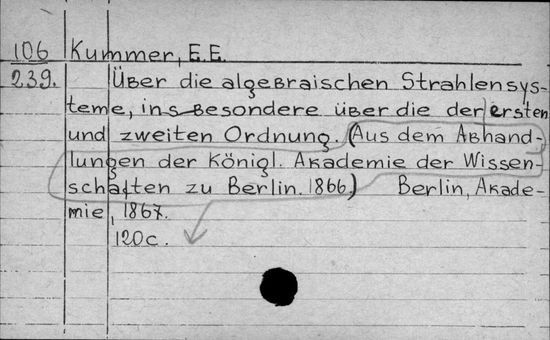 106 Kummer, E.E.
239. Über die algebraischen Strahlensys-
teme, insbesondere über die der ersten
und zweiten Ordnung. (Aus dem Abhand-
lungen der Königl. Akademie der Wissen-
schaften zu Berlin. 1866) Berlin, Akade-
mie, 1867.
120c.